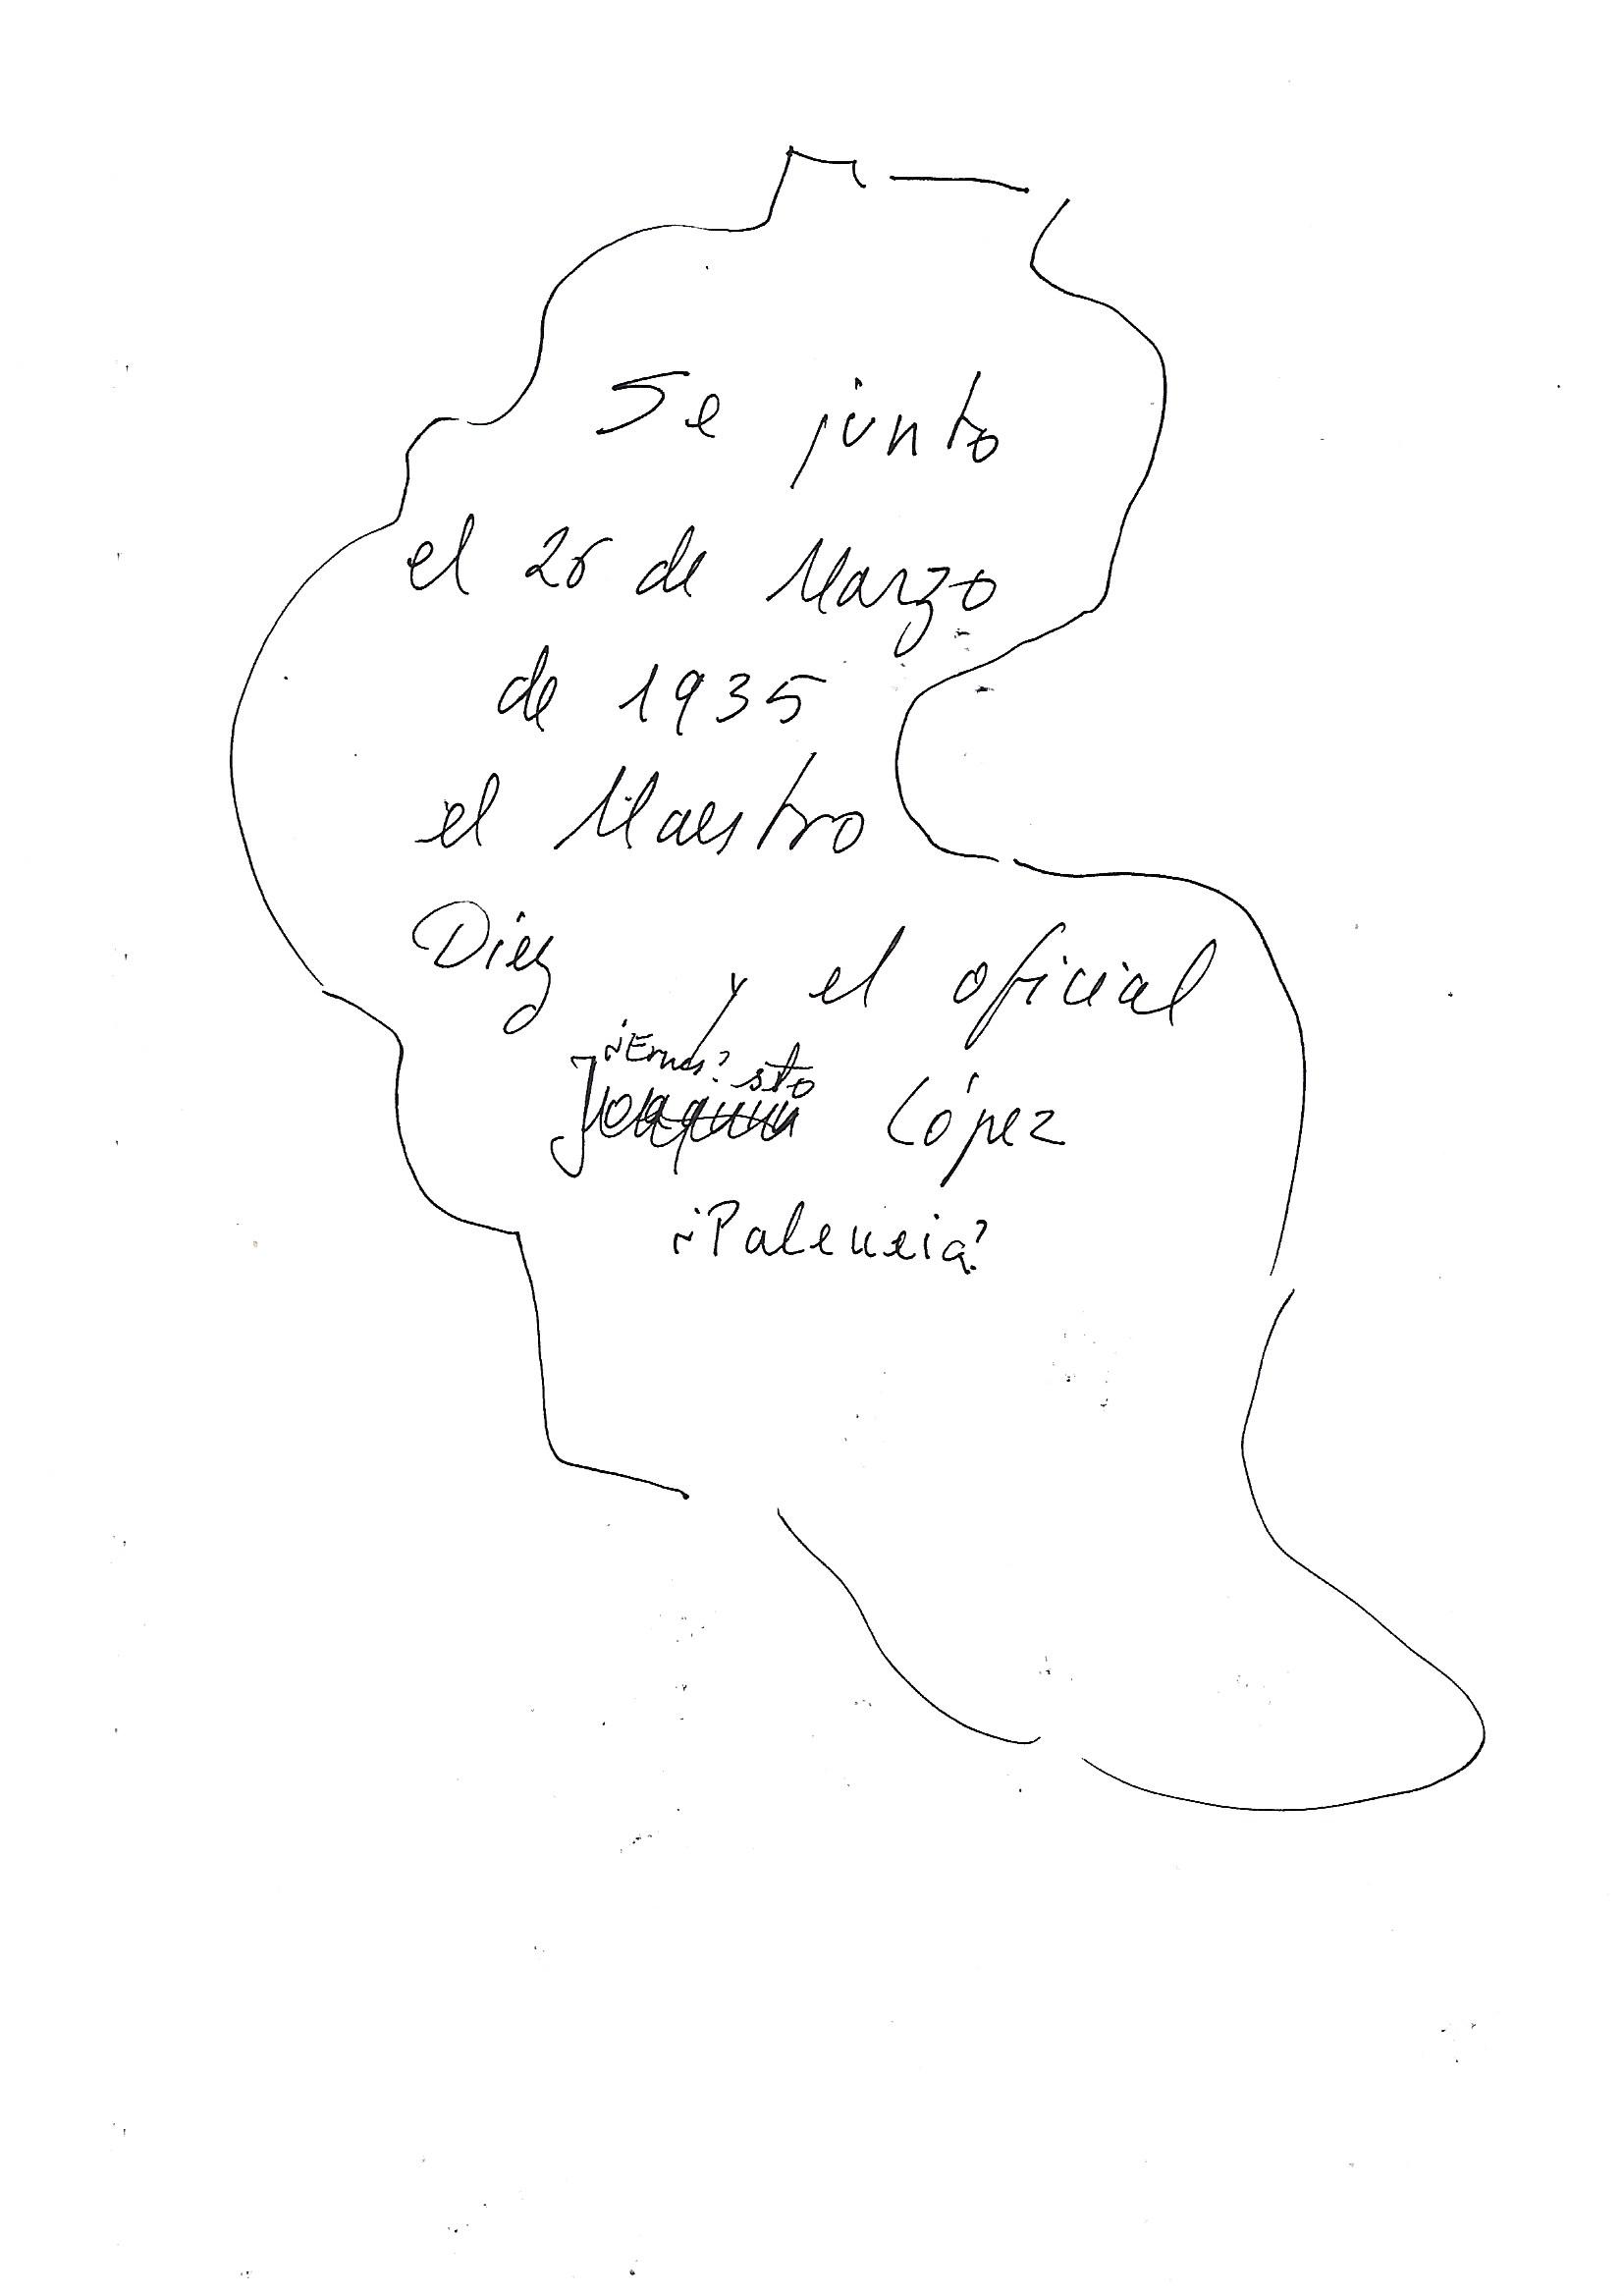 Se junto
el 26 de Marzo
de 1935
el Maestro
Diez
y el oficial
¿Ernes? sto
Joaquin López
¿Palencia?